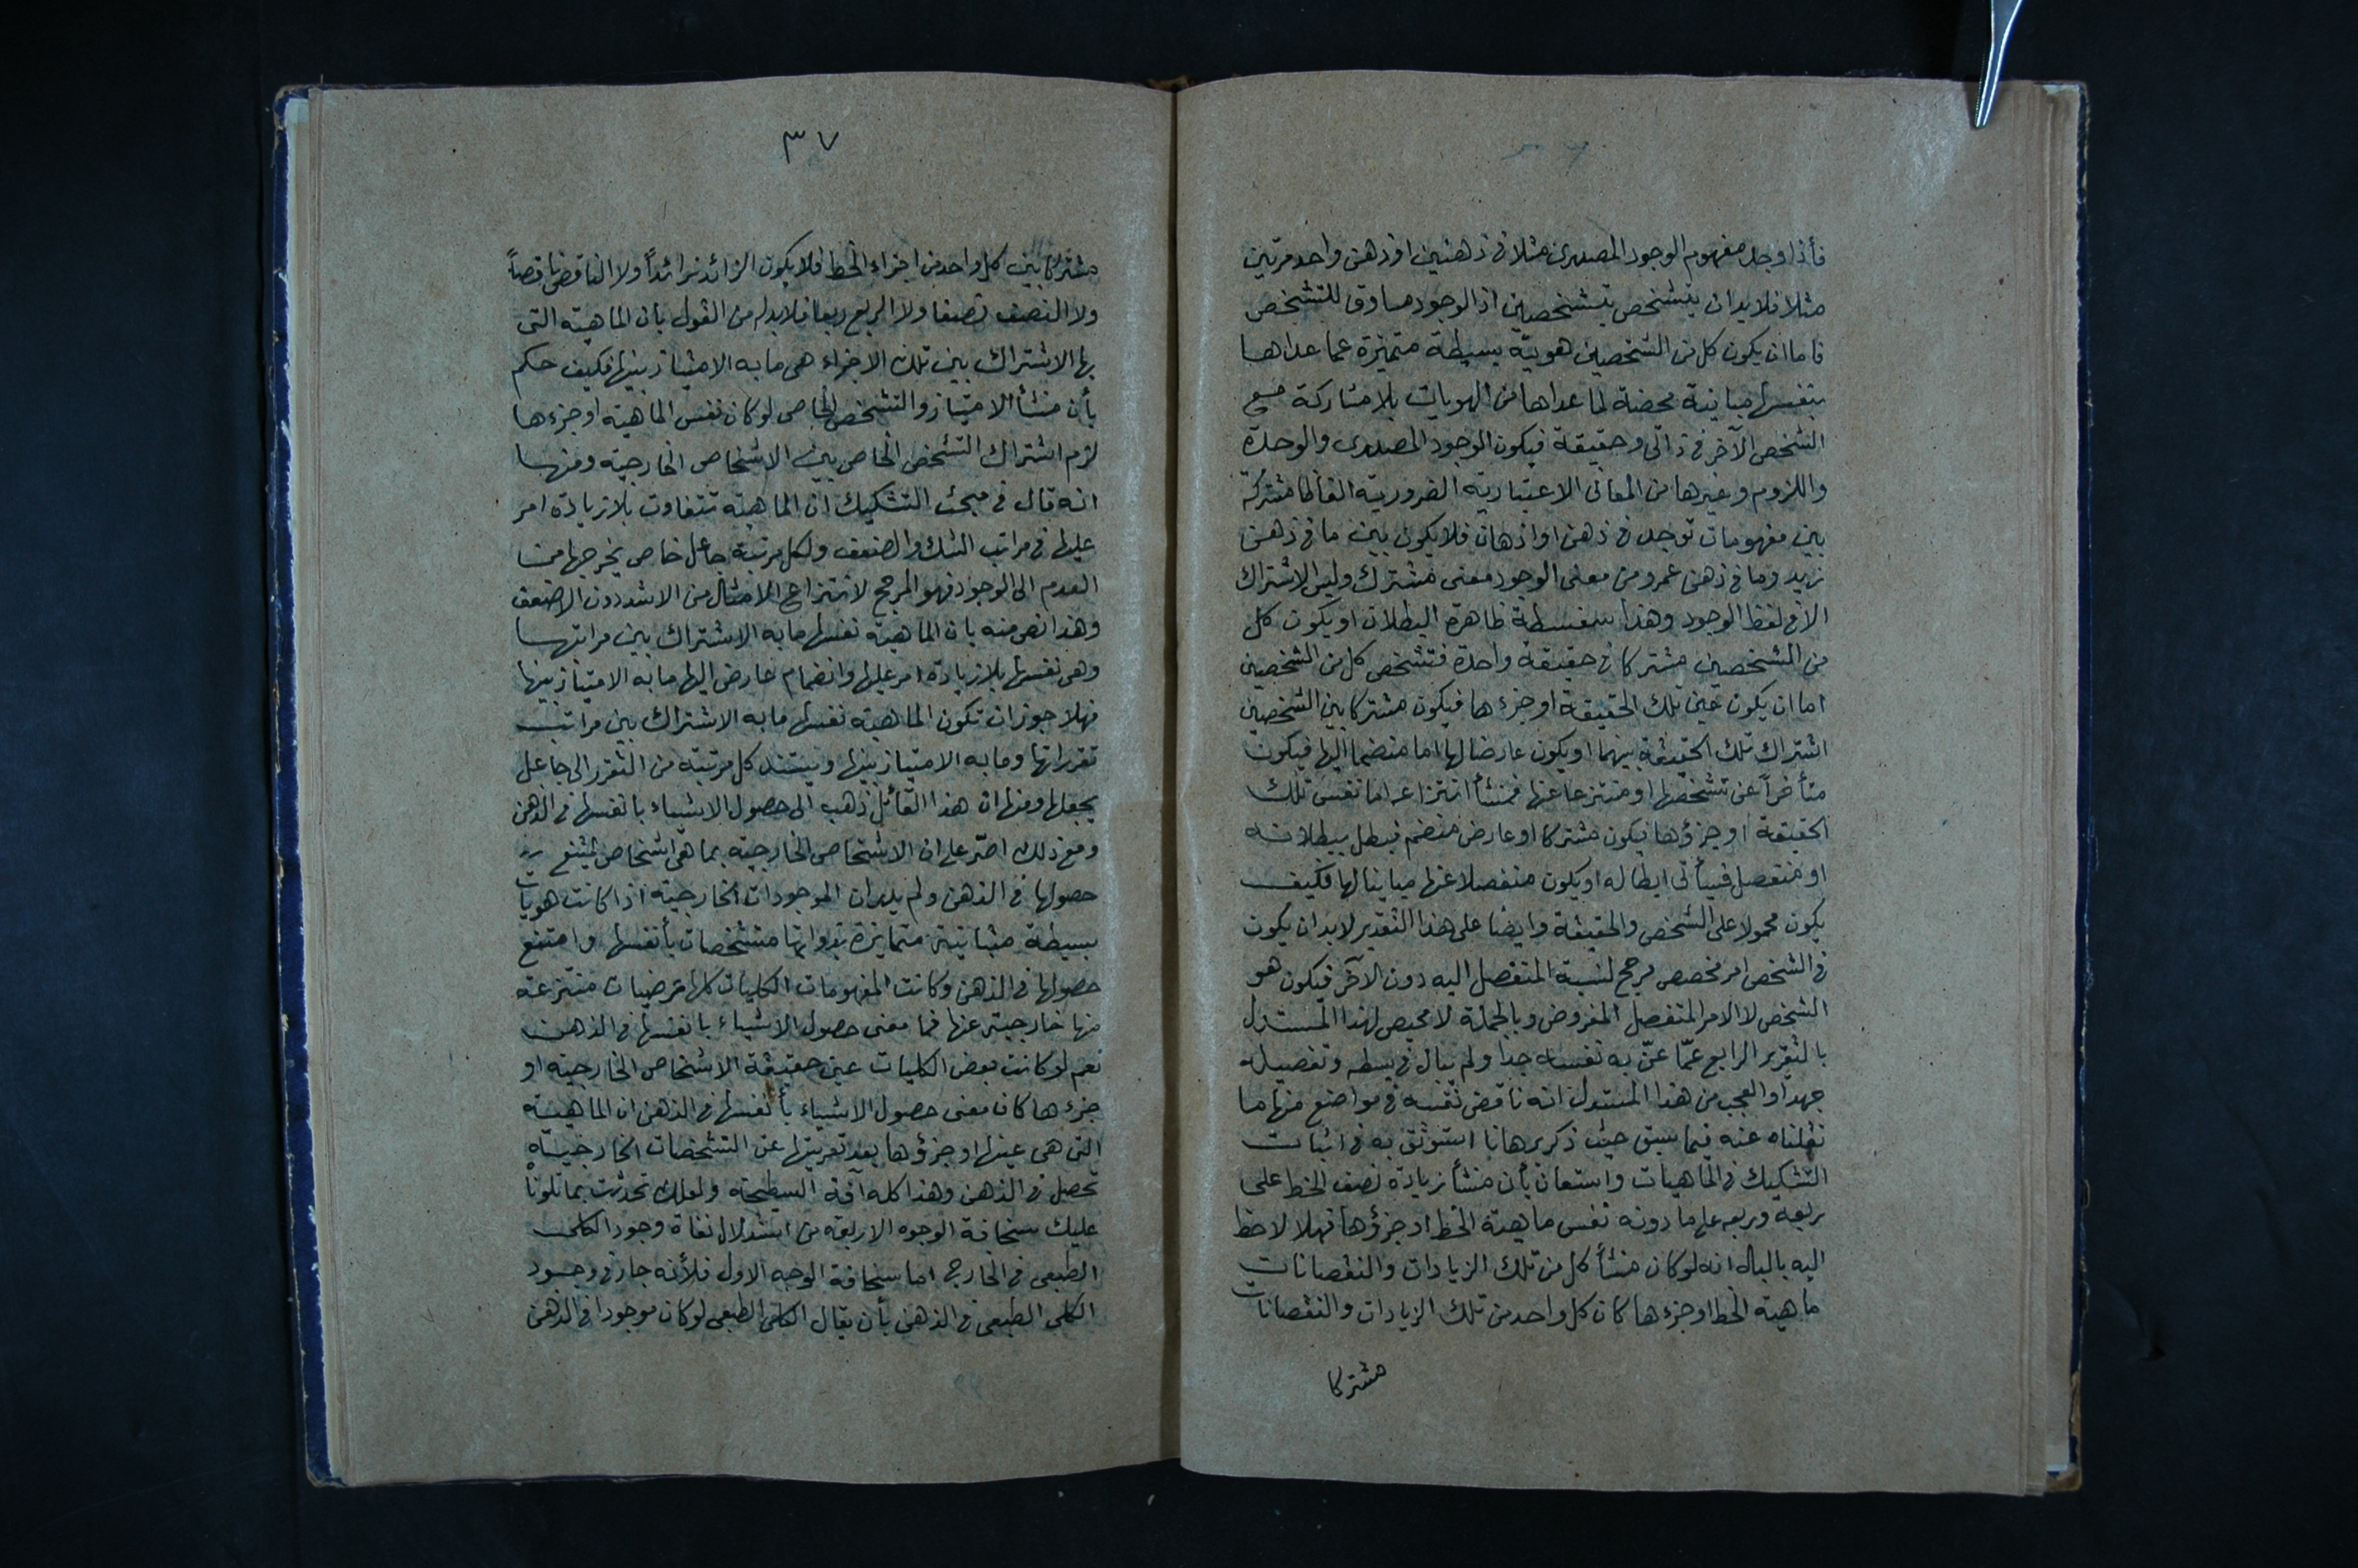 فأذا وجد مفهوم الوجود المصدرى مثلا فى ذهنين او ذهن واحد مرتين
مثلا فلا بد ان يتشخص بتشخصين اذ الوجود مساوق للتشخص
فاما ان يكون كل من الشخصين هوية بسيطة متميزة عما عداها
بنفسها مباينة محضة لما عداها من الهويات بلا مشاركة مع
الشخص الآخر فى ذاتى وحقيقة فيكون الوجود المصدرى والوحدة
واللزوم وغيرها من المعانى الاعتبارية الضرورية الفاظا مشتركة
بين مفهومات توجد فى ذهن او اذهان فلا يكون بين ما فى ذهن
زيد وما فى ذهن عمرو من معنى الوجود معنى مشترك وليس الاشتراك
الا فى لفظ الوجود وهذا سفسطة ظاهرة البطلان او يكون كل
من الشخصين مشتركا فى حقيقة واحدة فتشخص كل من الشخصين
اما ان يكون عين تلك الحقيقة او جزءها فيكون مشتركا بين الشخصين
اشتراك تلك الحقيقة بينهما او يكون عارضا لها اما منضما اليها فيكون
متأخراً عن تشخصها او منتزعا عنها فمنشأ انتزاعه اما نفس تلك
الحقيقة او جزؤها فيكون مشتركا او عارض منضم فبطل ببطلانه
او منفصل فسيأتى ابطاله او يكون منفصلا عنها مباينا لها فكيف
يكون محمولا على الشخص والحقيقة وايضا على هذا التقدير لا بد ان يكون
فى الشخص امر مخصص مرجح لنسبة المنفصل اليه دون الآخر فيكون هو
الشخص لا الامر المنفصل المفروض وبالجملة لا محيص لهذا المستدل
بالتقرير الرابع عمّا عنّى به نفسه جدا ولم يبال فى بسطه وتفصيله
جهداً والعجب من هذا المستدل انه ناقض نفسه فى مواضع منها ما
نقلناه عنه فيما سبق حيث ذكر برهانا استوثق به فى اثبات
التشكيك فى الماهيات واستعان بأن منشأ زيادة نصف الخط على
ربعه وربعه على ما دونه نفس ماهية الخط او جزؤها فهلا لاحظ
اليه بالبال انه لو كان منشأ كل من تلك الزيادات والنقصانات
ماهية الخط او جزءها كان كل واحد من تلك الزيادات والنقصانات
مشتركا
٣٧
مشتركا بين كل واحد من اجزاء الخط فلا يكون الزائد زائداً ولا الناقص ناقصاً
ولا النصف نصفا ولا الربع ربعا فلا بد له من القول بان الماهية التى
بها الاشتراك بين تلك الاجزاء هى ما به الامتياز بينها فكيف حكم
بأن منشأ الامتياز والتشخص الخاص لو كان نفس الماهية او جزءها
لزم اشتراك التشخص الخاص بين الاشخاص الخارجية ومنها
انه قال فى مبحث التشكيك ان الماهية تتفاوت بلا زيادة امر
عليها فى مراتب الشدة والضعف ولكل مرتبة جاعل خاص يخرجها من
العدم الى الوجود فهو المرجح لانتزاع الامثال من الاشد دون الاضعف
وهذا نص منه بان الماهية نفسها ما به الاشتراك بين مراتبها
وهى نفسها بلا زيادة امر عليها وانضمام عارض اليها ما به الامتياز بينها
فهلا جوز ان تكون الماهية نفسها ما به الاشتراك بين مراتب
تقرراتها وما به الامتياز بينها ويستند كل مرتبة من التقرر الى جاعل
يجعلها ومنها ان هذا القائل ذهب الى حصول الاشياء بانفسها فى الذهن
ومع ذلك اصرّ على ان الاشخاص الخارجية بما هى اشخاص يمتنع
حصولها فى الذهن ولم يدر ان الموجودات الخارجية اذا كانت هويات
بسيطة متباينة متمايزة بذواتها متشخصات بأنفسها وامتنع
حصولها فى الذهن وكانت المفهومات الكليات كلها عرضيات منتزعة
منها خارجية عنها فما معنى حصول الاشياء بانفسها فى الذهن
نعم لو كانت بعض الكليات عين حقيقة الاشخاص الخارجية او
جزءها كان معنى حصول الاشياء بأنفسها فى الذهن ان الماهية
التى هى عينها او جزؤها بعد تعريتها عن التشخصات الخارجية
تحصل فى الذهن وهذا كله آفة السطحية ولعلك تحدثت بما تلونا
عليك سخافة الوجوه الاربعة من استدلال نفاة وجود الكلى
الطبعى فى الخارج اما سخافة الوجه الاول فلأنه جار فى وجود
الكلى الطبعى فى الذهن بأن يقال الكلى الطبعى لو كان موجودا فى الذهن